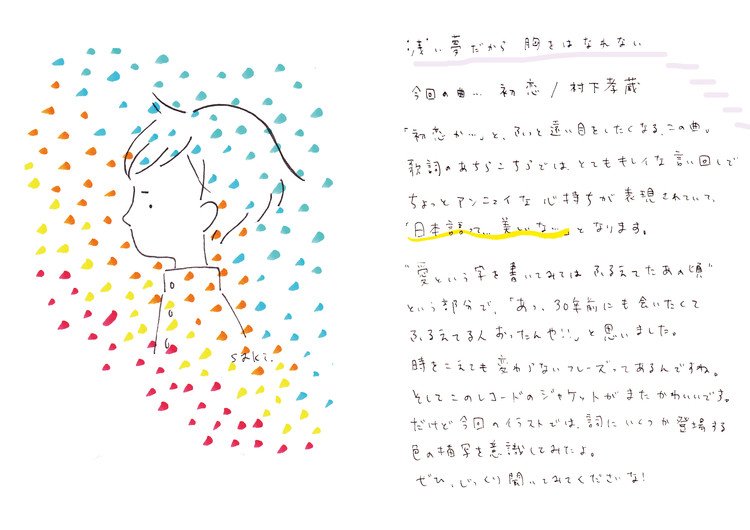 浅い夢だから 胸をはなれない
今回の曲… 初恋 / 村下孝蔵
「初恋か…」と、ふいと遠い目をしたくなる、この曲。
歌詞のあちらこちらでは、とてもキレイな言い回しで
ちょっとアンニュイな心持ちが表現されていて、
「日本語って、美しいな…」となります。
“愛という字を書いてみては ふるえてたあの頃”
という部分で、「あっ、30年前にも会いたくて
ふるえてる人おったんや!!」と思いました。
時をこえても変わらないフレーズってあるんですね。
そしてこのレコードのジャケットがまたかわいいです。
だけど今回のイラストでは、詞にいくつか登場する
色の描写を意識してみたよ。
ぜひ、じっくり聞いてみてくださいな!
saki.